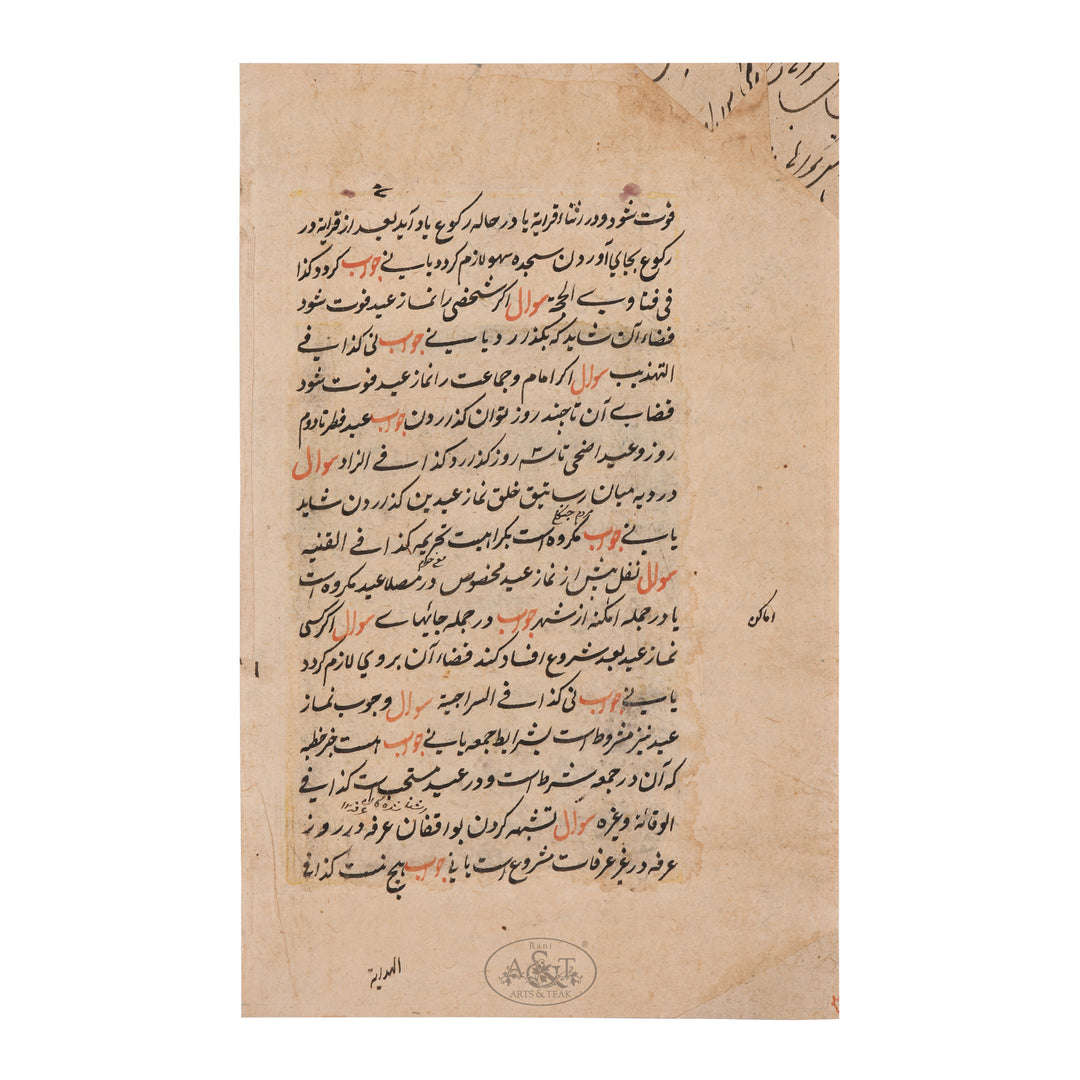 فوت شود و در اثناء قراية يا در حاله ركوع ياد آيد بعد از قراية در
ركوع بجاي آوردن سجده سهو لازم كردد يا ني جواب كردد كذا
في فتاوي الحجة سوال اكر شخصي را نماز عيد فوت شود
قضاء آن شايد كه بكذارد يا ني جواب ني كذا في
التهذيب سوال اكر امام و جماعت را نماز عيد فوت شود
قضاي آن تا چند روز توان كذاردن جواب عيد فطر تا دوم
روز و عيد اضحى تا ٣ روز كذارد كذا في الزاد سوال
در ديه ميان رساتيق خلق نماز عيدين كذاردن شايد
يا ني جواب مكروه است بكراهيت تحريمه كذا في القنيه
سوال نفل پيش از نماز عيد مخصوص در مصلا عيد مكروه است
يا در جمله امكنه از شهر جواب در جمله جائهاي سوال اكر كسي
اماكن
نماز عيد بعد شروع افساد كند قضاء آن بروي لازم كردد
يا ني جواب ني كذا في السراجية سوال وجوب نماز
عيد نيز مشروط است بشرايط جمعه يا ني جواب است جز خطبه
كه آن در جمعه شرط است و در عيد مستحب است كذا في
الوقاية و غيره سوال تشبه كردن بواقفان عرفه در روز
عرفه در غير عرفات مشروع است يا ني جواب هيچ نيست كذا في
الهداية
Rani
A&T
ARTS & TEAK
®